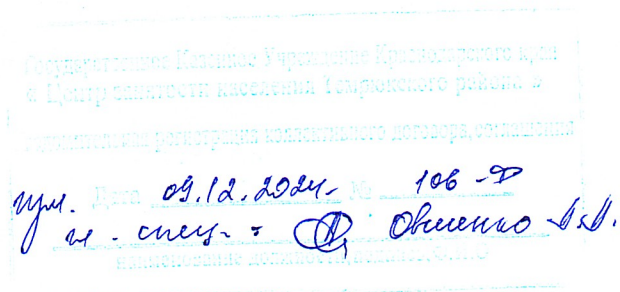 Государственное Казенное Учреждение Краснодарского края
« Центр занятости населения Темрюкского района »
уведомительная регистрация коллективного договора, соглашения
Дата 09.12.2024 № 106-Ф
спец.
наименование должности, подпись, Ф.И.О